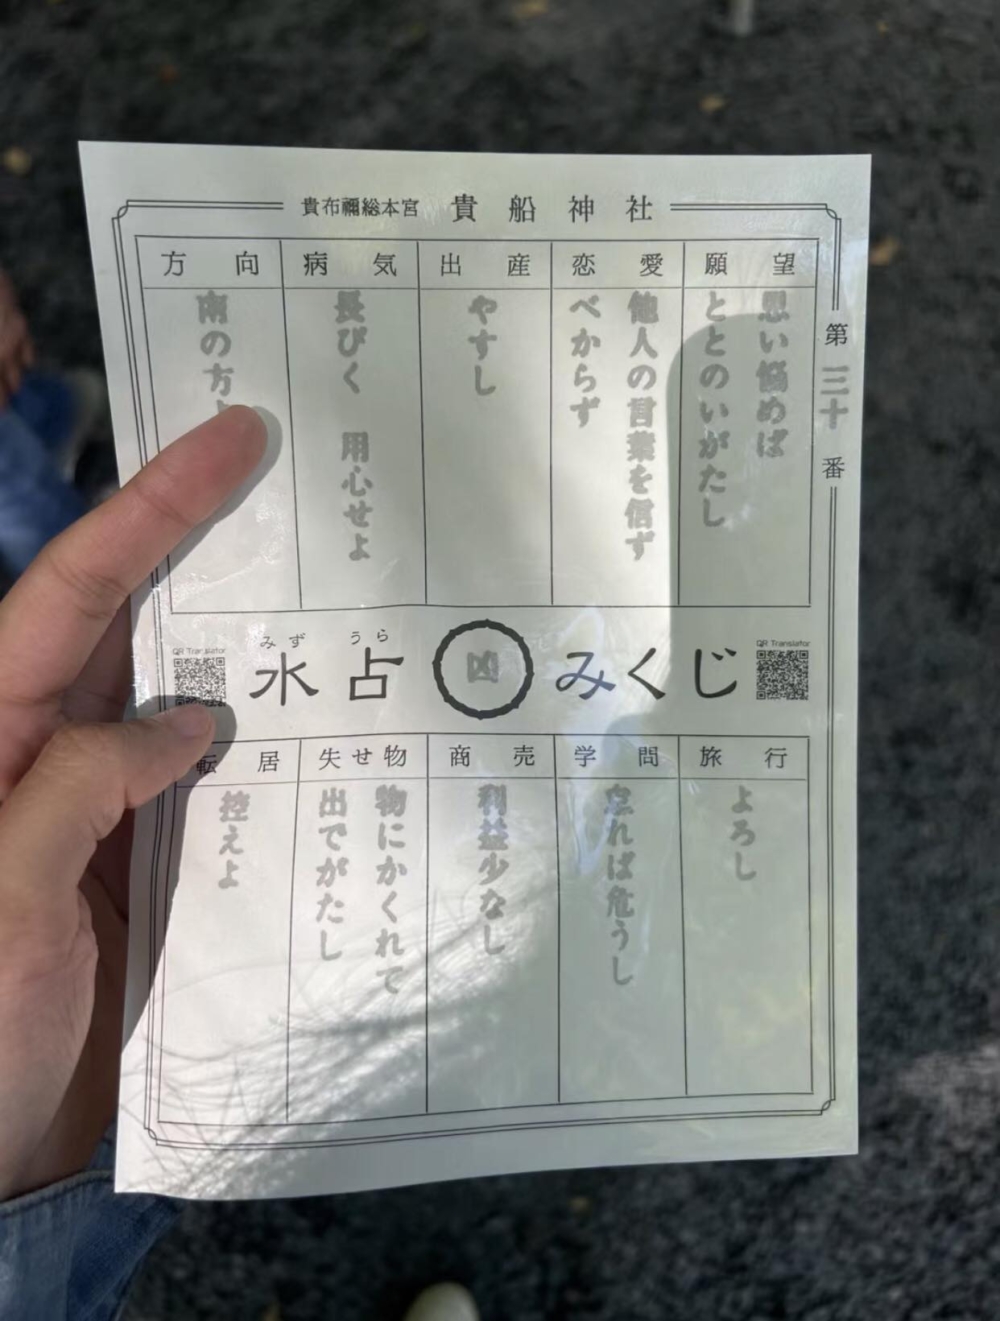 貴布禰総本宮 貴船神社
第三十番
願望
思い悩めば
ととのいがたし
恋愛
他人の言葉を信ず
べからず
出産
やすし
病気
長びく 用心せよ
方向
南の方
QR Translator
みずうら
水占
凶
みくじ
QR Translator
旅行
よろし
学問
怠れば危うし
商売
利益少なし
失せ物
物にかくれて
出でがたし
転居
控えよ